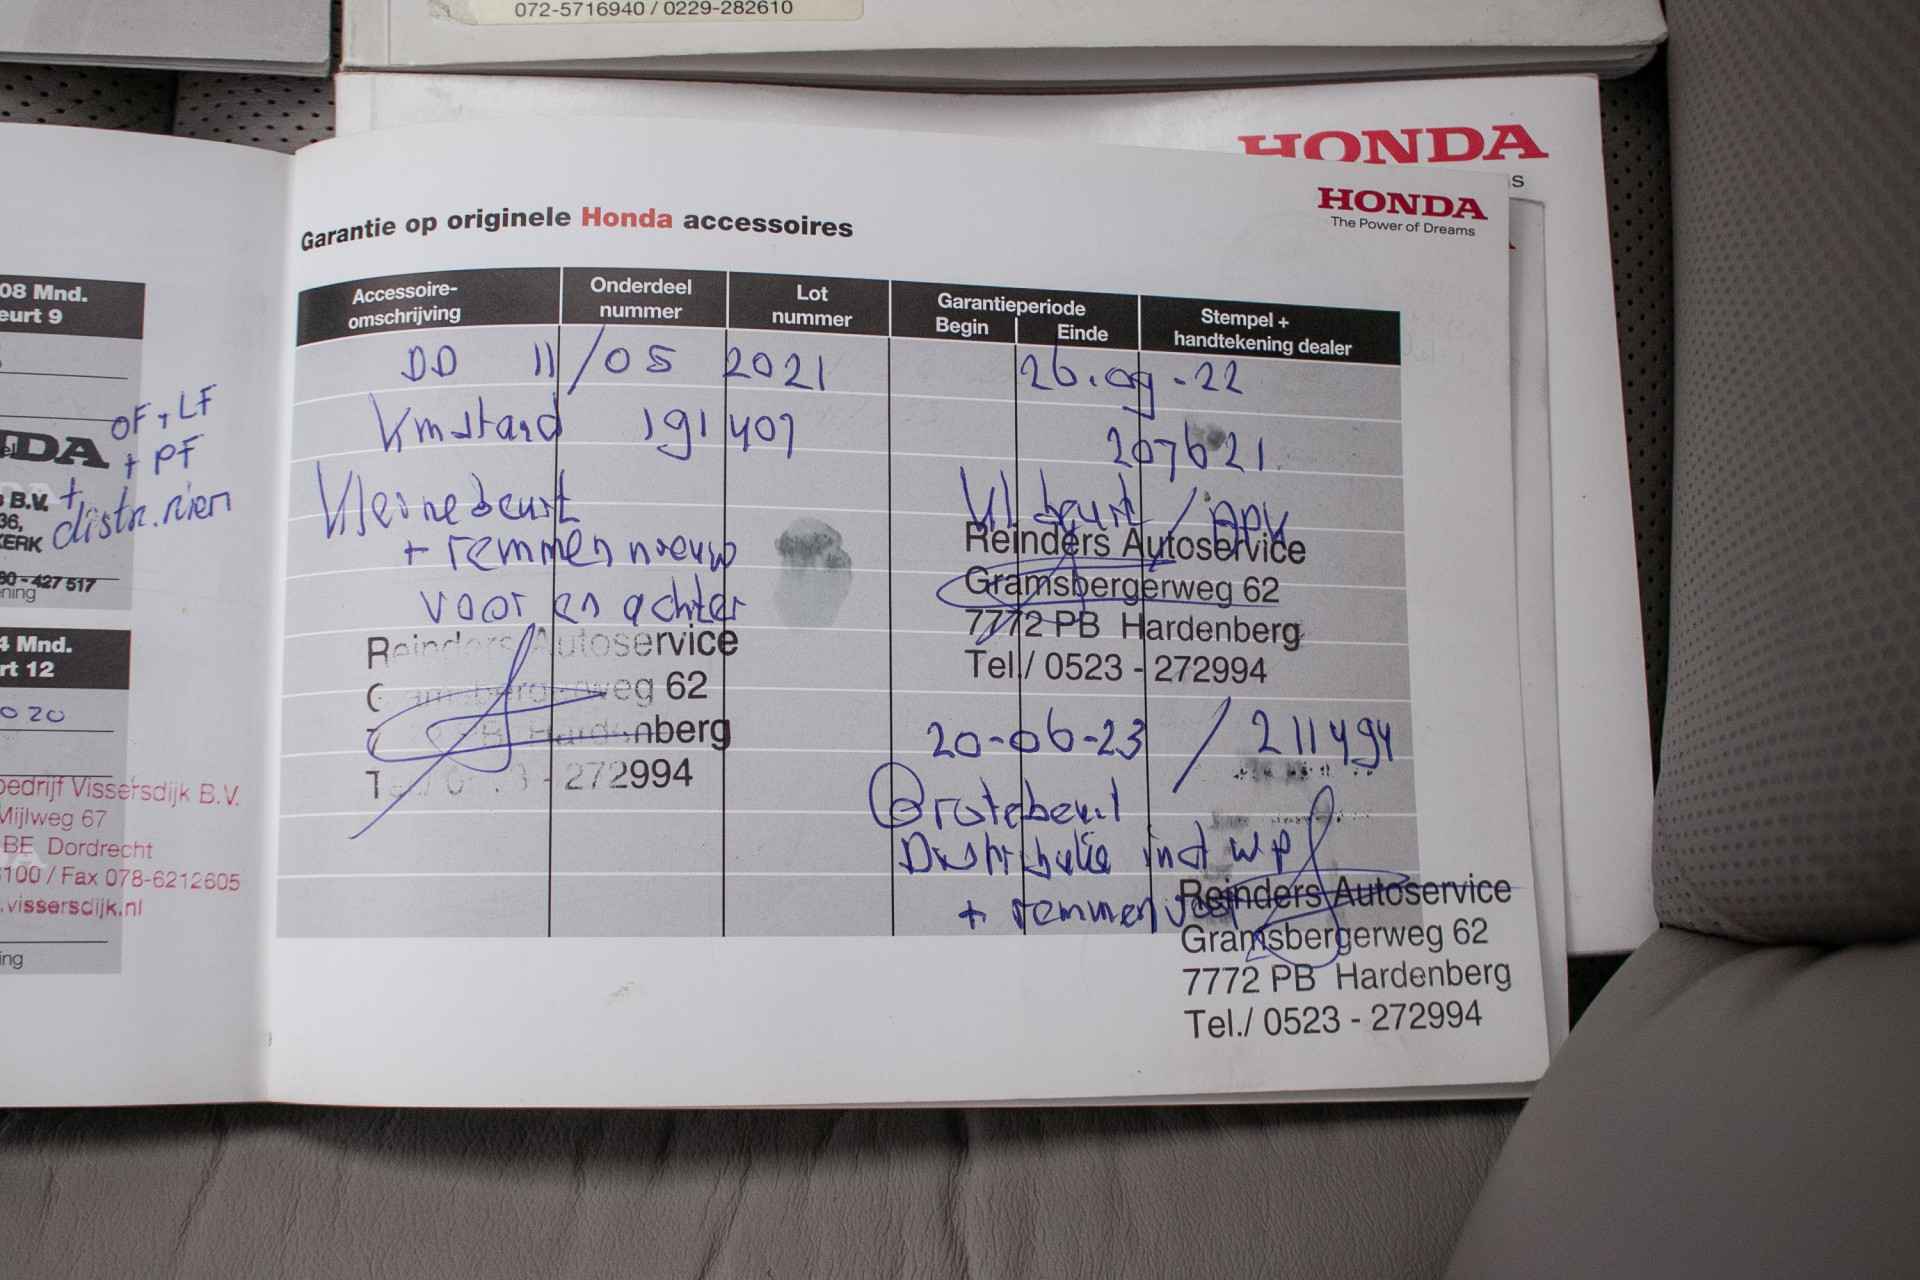 072-5716940 / 0229-282610
HONDA
HONDA
The Power of Dreams
Garantie op originele Honda accessoires
08 Mnd.
eurt 9
OF + LF
+ PF
+
distr. riem
DA
B.V.
36,
KERK
80 - 427 517
ning
4 Mnd.
rt 12
020
bedrijf Vissersdijk B.V.
Mijlweg 67
BE Dordrecht
100 / Fax 078-6212605
.vissersdijk.nl
ing
Accessoire-
omschrijving
Onderdeel
nummer
Lot
nummer
Garantieperiode
Begin Einde
Stempel +
handtekening dealer
DD 11/05 2021
Kmstand 191407
Kleinebeurt
+ remmen nieuw
voor en achter
Reinders Autoservice
Gramsbergerweg 62
7772 PB Hardenberg
Tel./ 0523 - 272994
26.09-22
207621
Kl beurt / APK
Reinders Autoservice
Gramsbergerweg 62
7772 PB Hardenberg
Tel./ 0523 - 272994
20-06-23 / 211494
Grotebeurt
Distributie incl wp
+ remmen voor
Reinders Autoservice
Gramsbergerweg 62
7772 PB Hardenberg
Tel./ 0523 - 272994